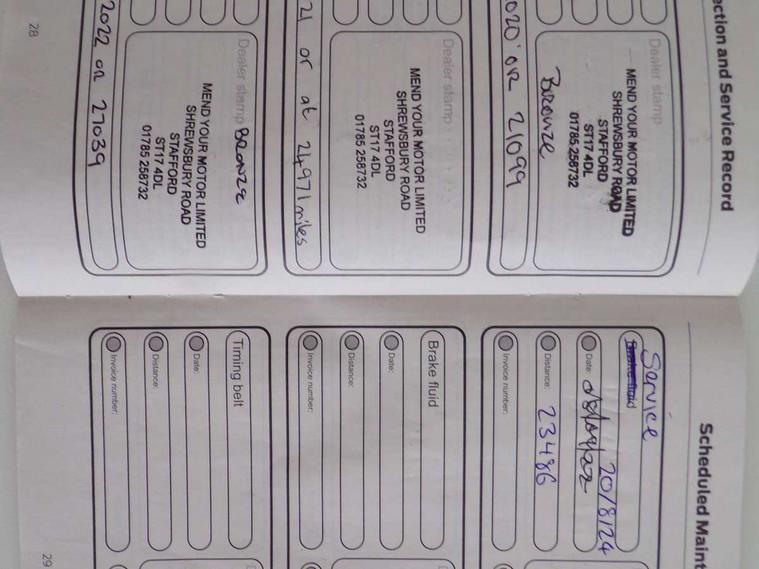 ection and Service Record
Dealer stamp
MEND YOUR MOTOR LIMITED
SHREWSBURY ROAD
STAFFORD
ST17 4DL
01785 258732
Bronze
020 OR 21099
Dealer stamp
MEND YOUR MOTOR LIMITED
SHREWSBURY ROAD
STAFFORD
ST17 4DL
01785 258732
21 or at 24971 miles
Dealer stamp BRONZE
MEND YOUR MOTOR LIMITED
SHREWSBURY ROAD
STAFFORD
ST17 4DL
01785 258732
2022 OR 27039
28
Scheduled Maint
Service
Brake fluid
20/8/24
Date:
Distance: 23486
Invoice number:
Brake fluid
Date:
Distance:
Invoice number:
Timing belt
Date:
Distance:
Invoice number:
29